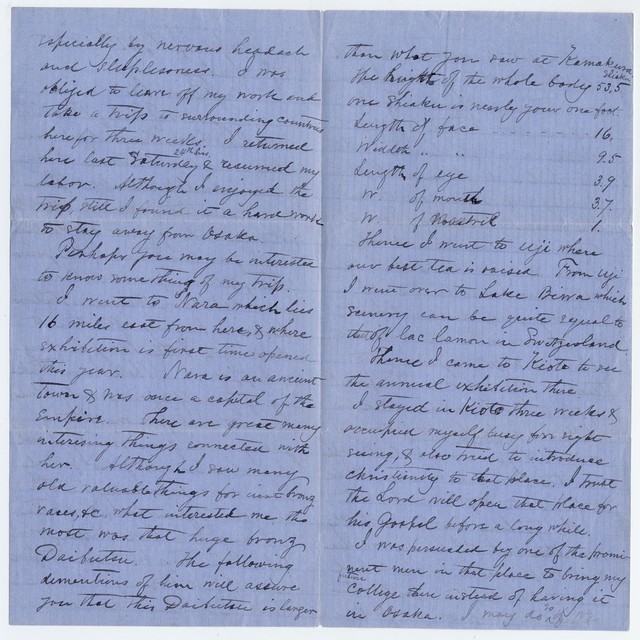 especially by nervous headach
and Sleeplessness. I was
obliged to leave off my work and
take a trip to surrounding countries
here for three weeks. I returned
24th his
here last Saturday & resumed my
labor. Although I enjoyed the
trip still I found it a hard work
to stay away from Osaka.
Perhaps you may be interested
to know something of my trip.
I went to Nara which lies
16 miles east from here, & where
exhibition is first time opened
this year. Nara is an ancient
town & was once a capital of the
Empire. There are great many
interesing things connected with
her. Although I saw many
old valuable things for inst bronz
vases, &c. what interested me the
most was that huge bronz
Daibutsu. The following
demention of him will assure
you that this Daibutsu is larger
than what you saw at Kamakura
Shiaku
The hight of the whole body 53.5
one Shiaku is nearly your one foot.
Length of face 16.
Width " " 9.5
Length of eye 3.9
W. of mouth 3.7
W. of Nostril 1.
Thence I went to Uji where
our best tea is raised. From Uji
I went over to Lake Biwa which
scenery can be quite equal to
that of lac Laman in Switzerland
Thence I came to Kioto to see
the annual exhibition there.
I stayed in Kioto three weeks &
occupied myself busy for sight
seeing, & also tried to introduce
christianity to that place. I trust
the Lord will open that place for
his Gospel before a long while.
I was persuaded by one of the promi
nent men in that place to bring my
future
college then instead of having it
in Osaka. I may do so